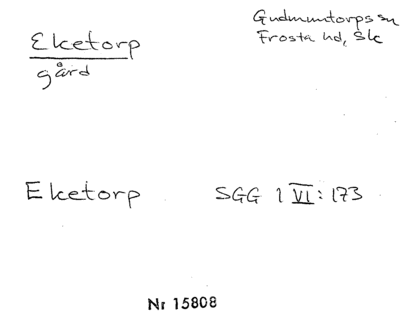 Eketorp
gård
Gudmuntorps sn
Frosta hd, Sk
Eketorp SGG 1 VI: 173
Nr 15808